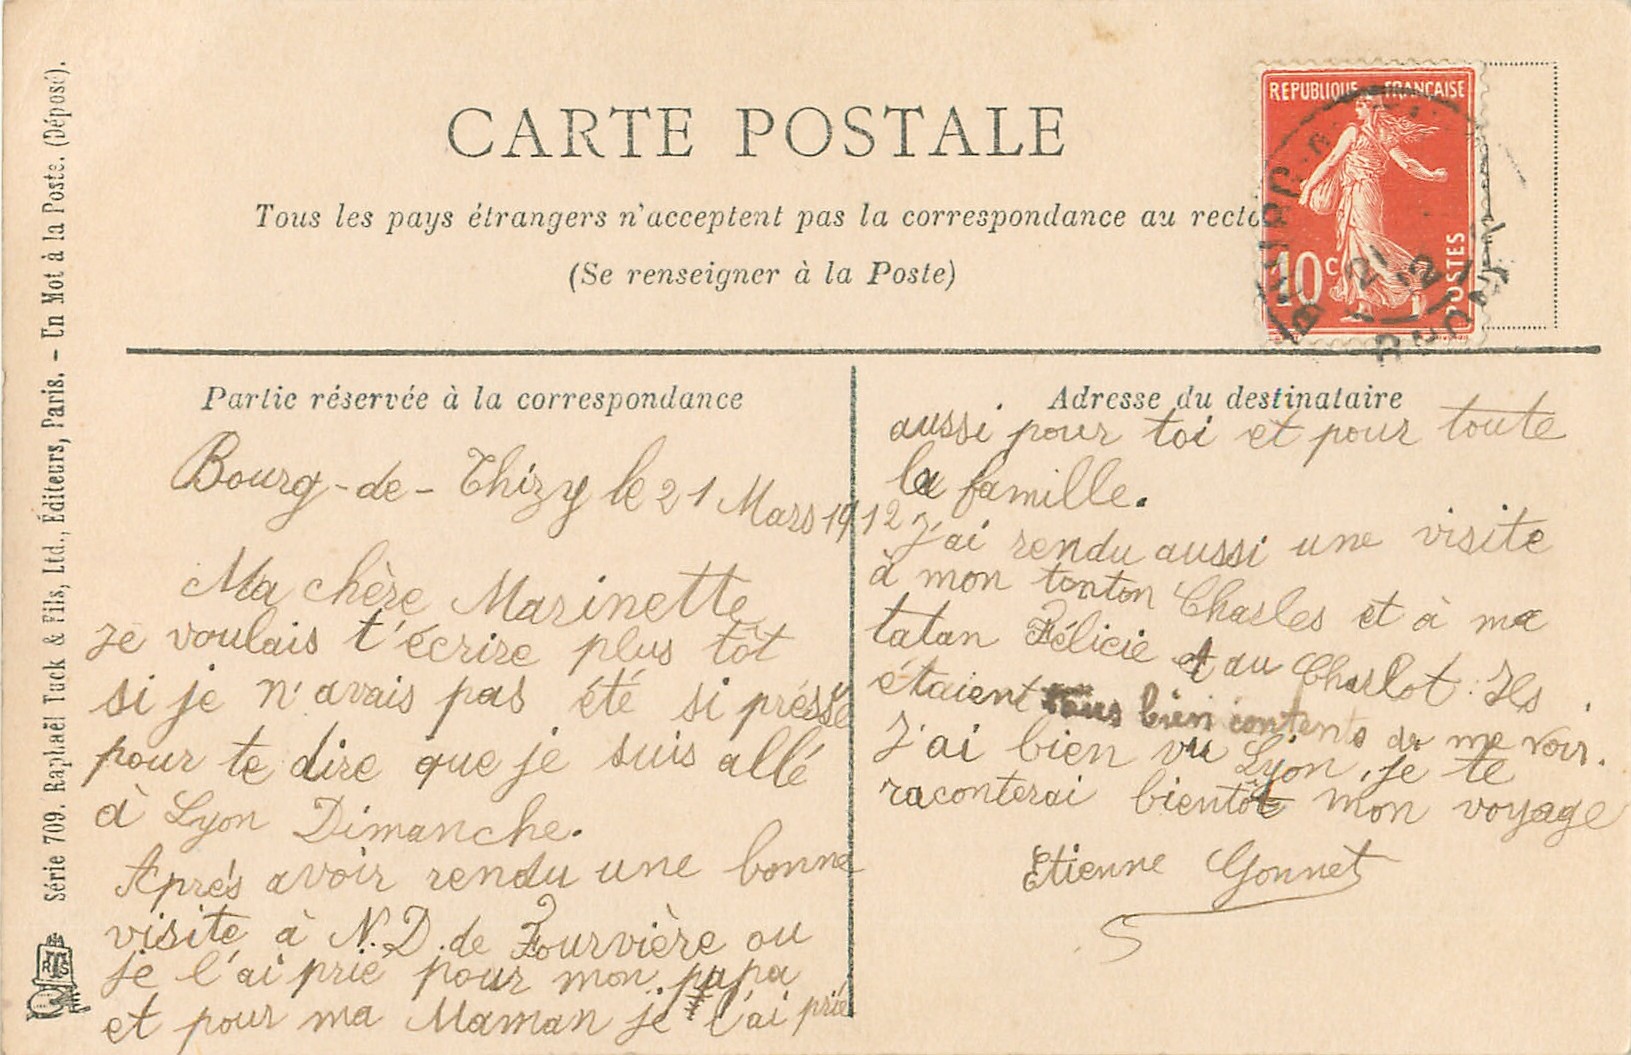 CARTE POSTALE
Tous les pays étrangers n'acceptent pas la correspondance au recto
(Se renseigner à la Poste)
REPUBLIQUE FRANÇAISE
10c
POSTES
21
12
Série 709. Raphaël Tuck & Fils, Ltd., Éditeurs, Paris. - Un Mot à la Poste. (Déposé).
RTS
Partie réservée à la correspondance
Bourg-de-Thizy le 21 Mars 1912
Ma chère Marinette
Je voulais t'écrire plus tôt
si je n'avais pas été si préssé
pour te dire que je suis allé
à Lyon Dimanche.
Aprés avoir rendu une bonne
visite à N.D. de Fourvière ou
je l'ai prié pour mon papa
et pour ma Maman je l'ai prié
Adresse du destinataire
aussi pour toi et pour toute
la famille.
J'ai rendu aussi une visite
à mon tonton Charles et à ma
tatan Félicie et au Charlot. Ils
étaient tous bien contents de me voir.
J'ai bien vu Lyon, je te
raconterai bientôt mon voyage
Etienne Gonnet